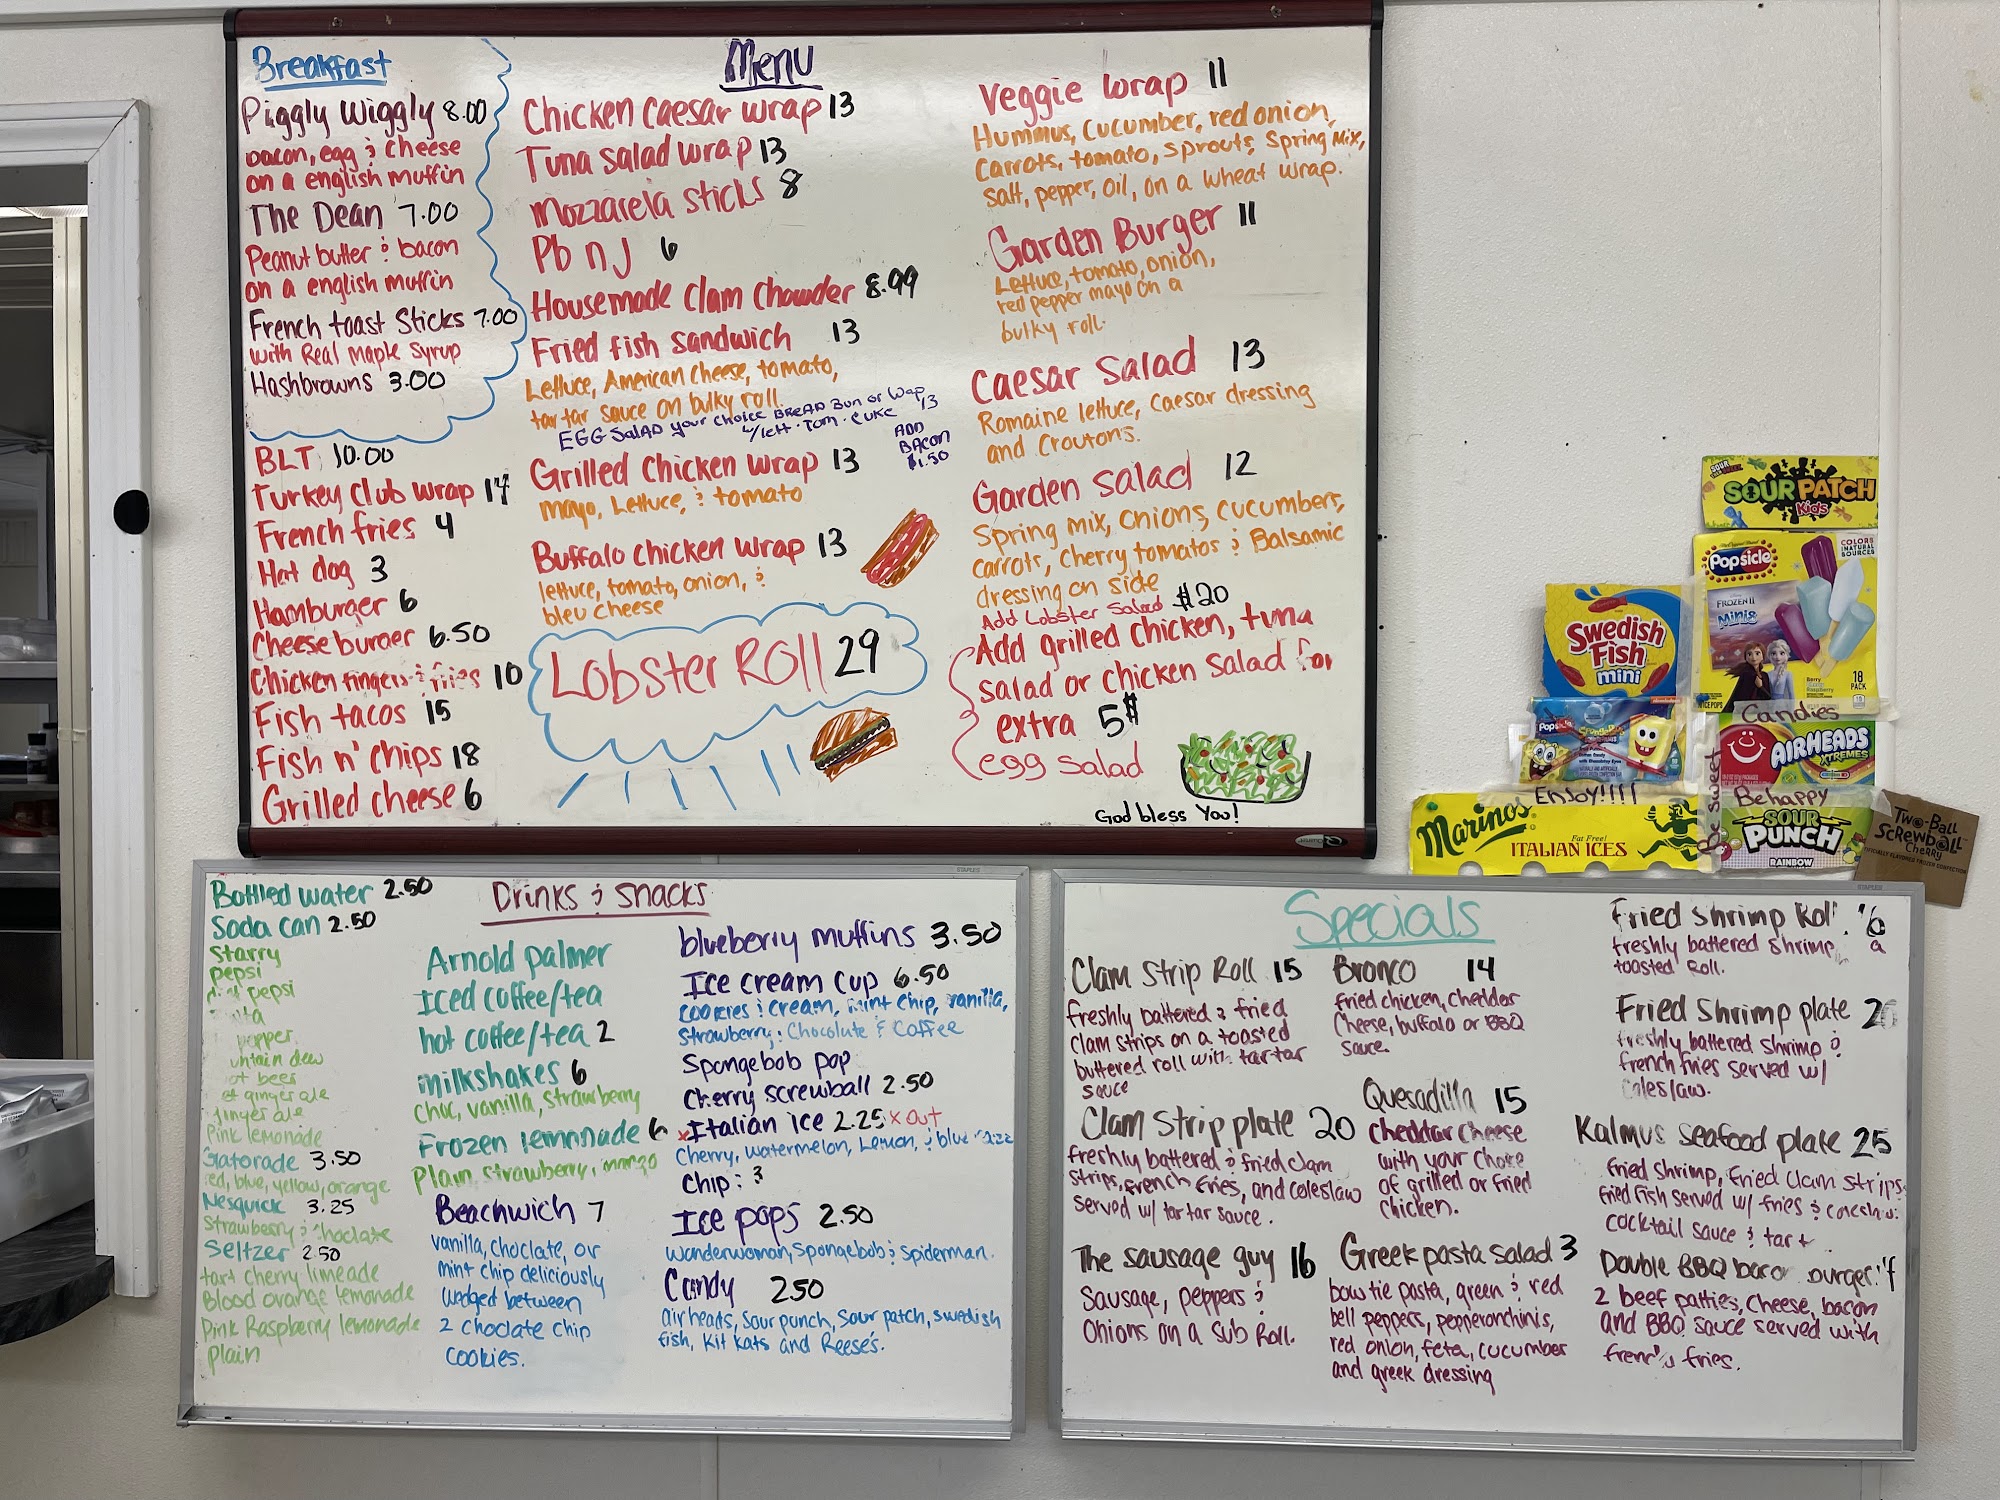 Breakfast
Piggly Wiggly 8.00
bacon, egg & cheese
on a english muffin
The Dean 7.00
Peanut butter & bacon
on a english muffin
French toast Sticks 7.00
with Real Maple Syrup
Hashbrowns 3.00
BLT 10.00
Turkey Club wrap 14
French fries 4
Hot dog 3
Hamburger 6
Cheeseburger 6.50
Chicken fingers & fries 10
Fish tacos 15
Fish n' chips 18
Grilled cheese 6
Menu
Chicken Caesar wrap 13
Tuna salad wrap 13
Mozzarela sticks 8
Pb n J 6
Housemade Clam Chowder 8.99
Fried fish sandwich 13
Lettuce, American cheese, tomato,
tartar sauce on bulky roll.
EGG SALAD your choice BREAD Bun or Wrap 13
w/lett. Tom. Cuke
ADD
BACON
$1.50
Grilled Chicken Wrap 13
mayo, Lettuce, & tomato
Buffalo chicken wrap 13
lettuce, tomato, onion, &
bleu cheese
Lobster Roll 29
Veggie Wrap 11
Hummus, cucumber, red onion,
Carrots, tomato, sprouts, Spring Mix,
salt, pepper, oil, on a wheat wrap.
Garden Burger 11
Lettuce, tomato, onion,
red pepper mayo on a
bulky roll.
Caesar Salad 13
Romaine lettuce, Caesar dressing
and Croutons.
Garden Salad 12
Spring mix, onions, cucumbers,
carrots, Cherry tomatos & Balsamic
dressing on side
Add Lobster Salad $20
Add grilled chicken, tuna
salad or chicken salad for
extra 5$
egg salad
God bless You!
SOUR PATCH
Kids
Popsicle
COLORS
NATURAL
SOURCES
FROZEN II
Minis
18
PACK
Swedish
Fish
mini
Candies
AIRHEADS
XTREMES
Enjoy!!!!
Be sweet
Be happy
Marinos
Fat Free!
ITALIAN ICES
SOUR
PUNCH
RAINBOW
TWO-BALL
SCREWBALL
CHERRY
Drinks & Snacks
Bottled water 2.50
Soda can 2.50
Starry
pepsi
pepsi
ginger ale
Pink lemonade
Gatorade 3.50
red, blue, yellow, orange
Nesquick 3.25
Strawberry & Choclate
Seltzer 2.50
tart cherry limeade
Blood orange lemonade
Pink Raspberry lemonade
plain
Arnold palmer
Iced coffee/tea
hot coffee/tea 2
milkshakes 6
choc, vanilla, strawberry
Frozen lemonade 6
Plain, strawberry, mango
Beachwich 7
vanilla, choclate, or
mint chip deliciously
wedged between
2 choclate chip
cookies.
blueberry muffins 3.50
Ice cream cup 6.50
cookies & cream, mint chip, vanilla,
strawberry, Chocolate & Coffee
Spongebob pop
Cherry screwball 2.50
x Italian ice 2.25 x out
Cherry, watermelon, Lemon, & blue
Chip: 3
Ice pops 2.50
Wonderwoman, Spongebob & Spiderman.
Candy 2.50
airheads, Sour punch, Sour patch, swedish
fish, Kit Kats and Reese's.
Specials
Clam Strip Roll 15
freshly battered & fried
clam strips on a toasted
buttered roll with tartar
sauce
Clam Strip plate 20
freshly battered & fried clam
strips, french fries, and coleslaw
served w/ tartar sauce.
The sausage guy 16
Sausage, peppers &
Onions on a Sub Roll.
Bronco 14
fried chicken, cheddar
Cheese, buffalo or BBQ
sauce.
Quesadilla 15
Cheddar cheese
with your choice
of grilled or fried
chicken.
Greek pasta salad 3
bowtie pasta, green & red
bell peppers, pepperonchinis,
red onion, feta, cucumber
and greek dressing
Fried shrimp Roll 16
freshly battered shrimp, a
toasted roll.
Fried Shrimp plate
freshly battered shrimp &
french fries served w/
coleslaw.
Kalmus Seafood plate 25
fried shrimp, fried clam strips
fried fish served w/ fries &
cocktail sauce &
Double BBQ bacon burger
2 beef patties, cheese, bacon
and BBQ sauce served with
french fries.